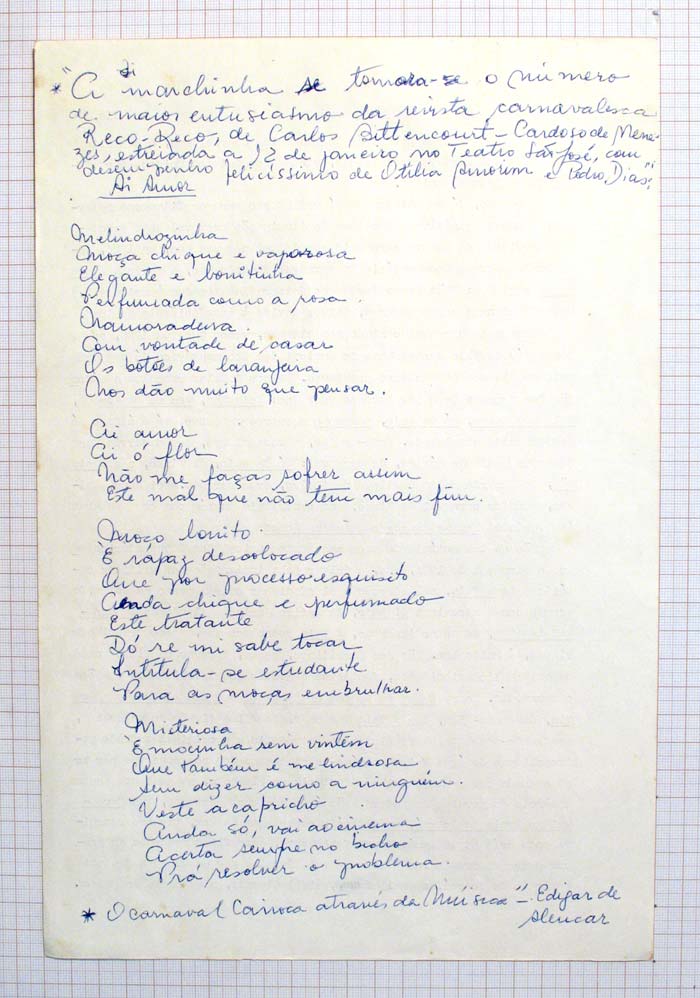 * "A marchinha se tornara-se o número
de maior entusiasmo da revista carnavalesca
Reco-Reco, de Carlos Bittencourt - Cardoso de Mene-
zes, estreiada a 12 de janeiro no Teatro São José, com
desempenho felicíssimo de Otília Amorim e Pedro Dias;"
Ai Amor
Melindrozinha
Moça chique e vaporosa
Elegante e bonitinha
Perfumada como a rosa.
Namoradeira.
Com vontade de casar
Os botões de laranjeira
Nos dão muito que pensar.
Ai amor
Ai ó flor
Não me faças sofrer assim
Este mal que não tem mais fim.
Moço bonito.
É rapaz descolocado
Que por processo esquisito
Anda chique e perfumado
Este tratante
Dó re mi sabe tocar
Intitula-se estudante
Para as moças embrulhar.
Misteriosa
É mocinha sem vintém
Que também é melindrosa
Sem dizer como a ninguém.
Veste a capricho
Anda só, vai ao cinema
Acerta sempre no bicho
Prá resolver o problema.
* O carnaval Carioca através da Música" - Edigar de
Alencar